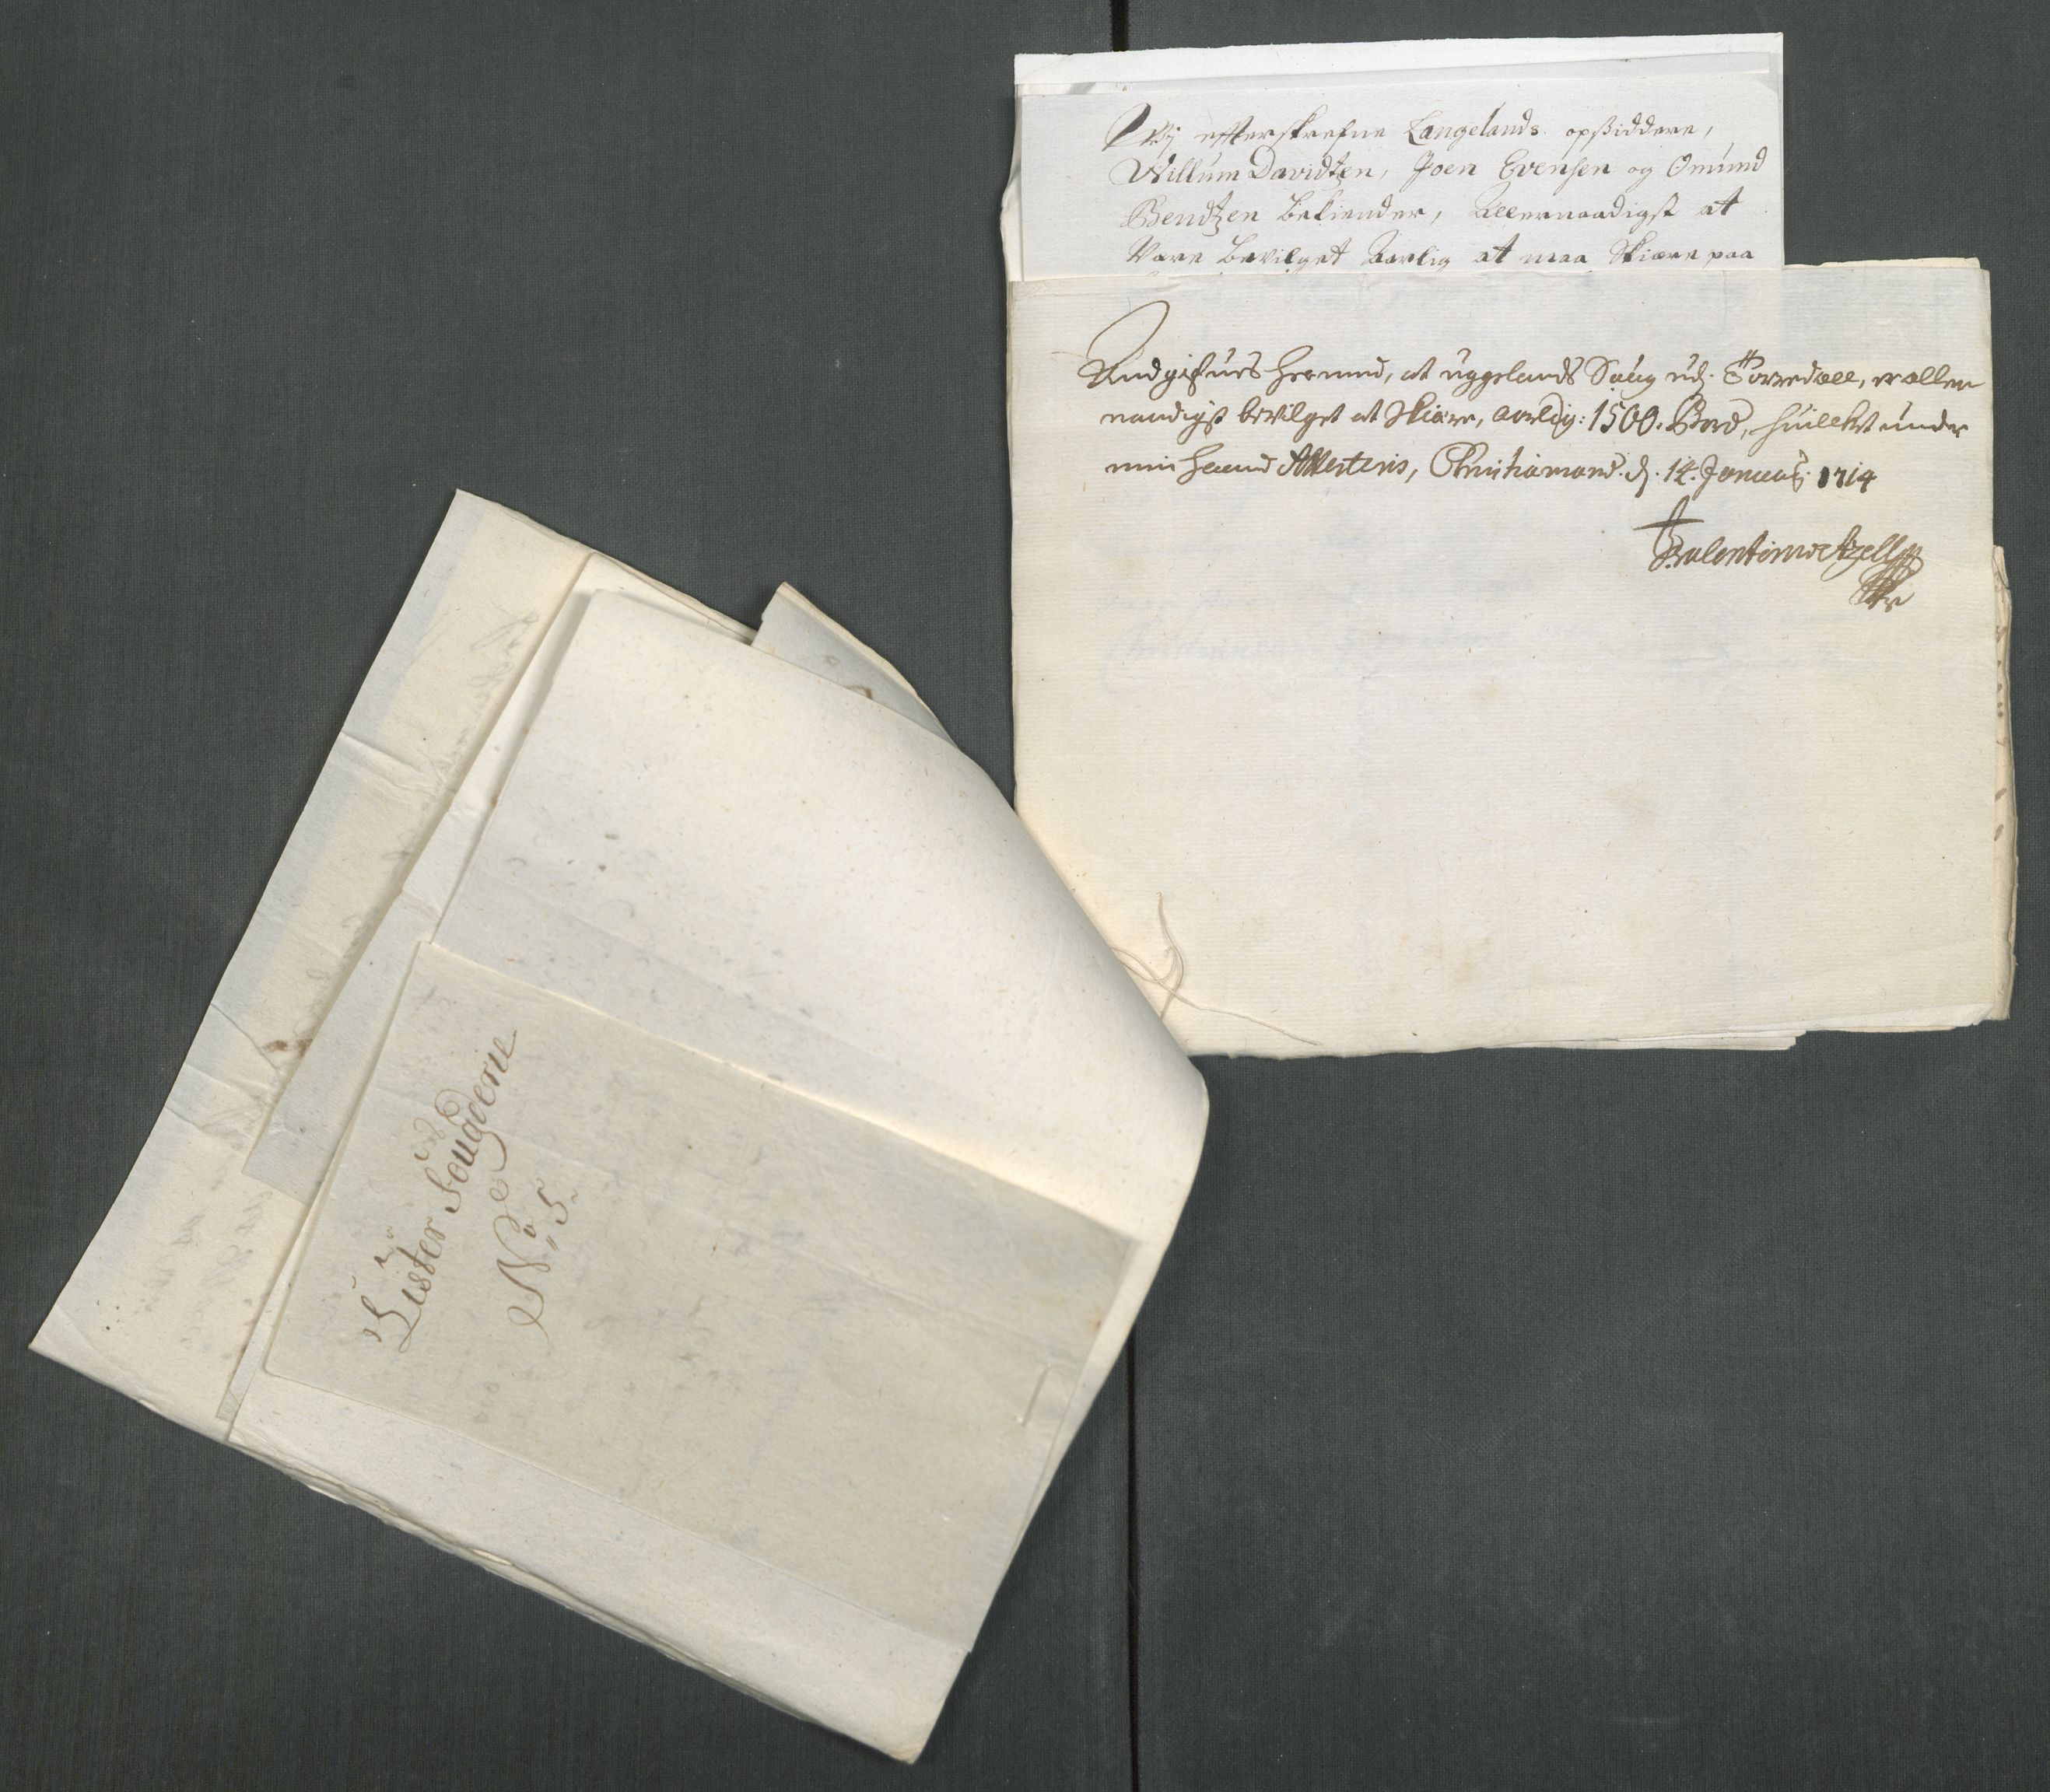 Vj effterskrefne Langelands opsiddere,
Willum Davidtzen, Joen Evensen og Omund
Bendtzen bekiender, Allernaadigst at
Være bevilget Aarlig at maa Skiære paa
hermed, at uggelands Saug udj Torredall, er aller
naadigst bevilget at Skiære, aarlig: 1500. Bord, huilket under
min haand Attesteris, Christiansand. d. 14. Januarj: 1714
Lister Fougderie
No. 5.